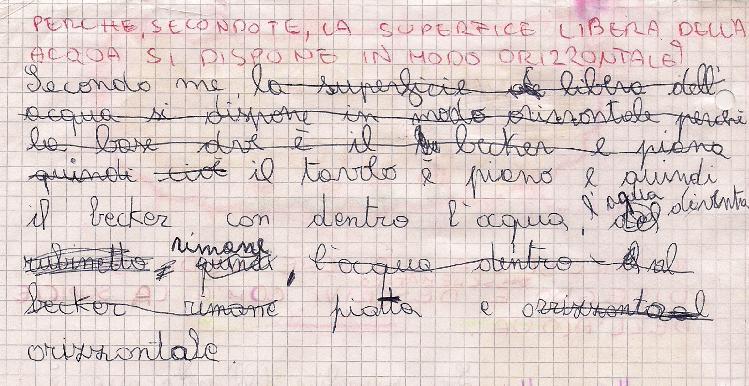 PERCHE, SECONDO TE, LA SUPERFICE LIBERA DELLA
ACQUA SI DISPONE IN MODO ORIZZONTALE?
Secondo me, la superficie de libera dell'
acqua si dispone in modo orizzontale perché
la base dvè è il be becker e piana
quindi cioè il tavolo è piano e quindi
il becker con dentro l'acqua, l'aqua diventa
rubinetto e quindi rimane, l'acqua dentro al
becker rimane piatta e orizzontal
orizzontale.